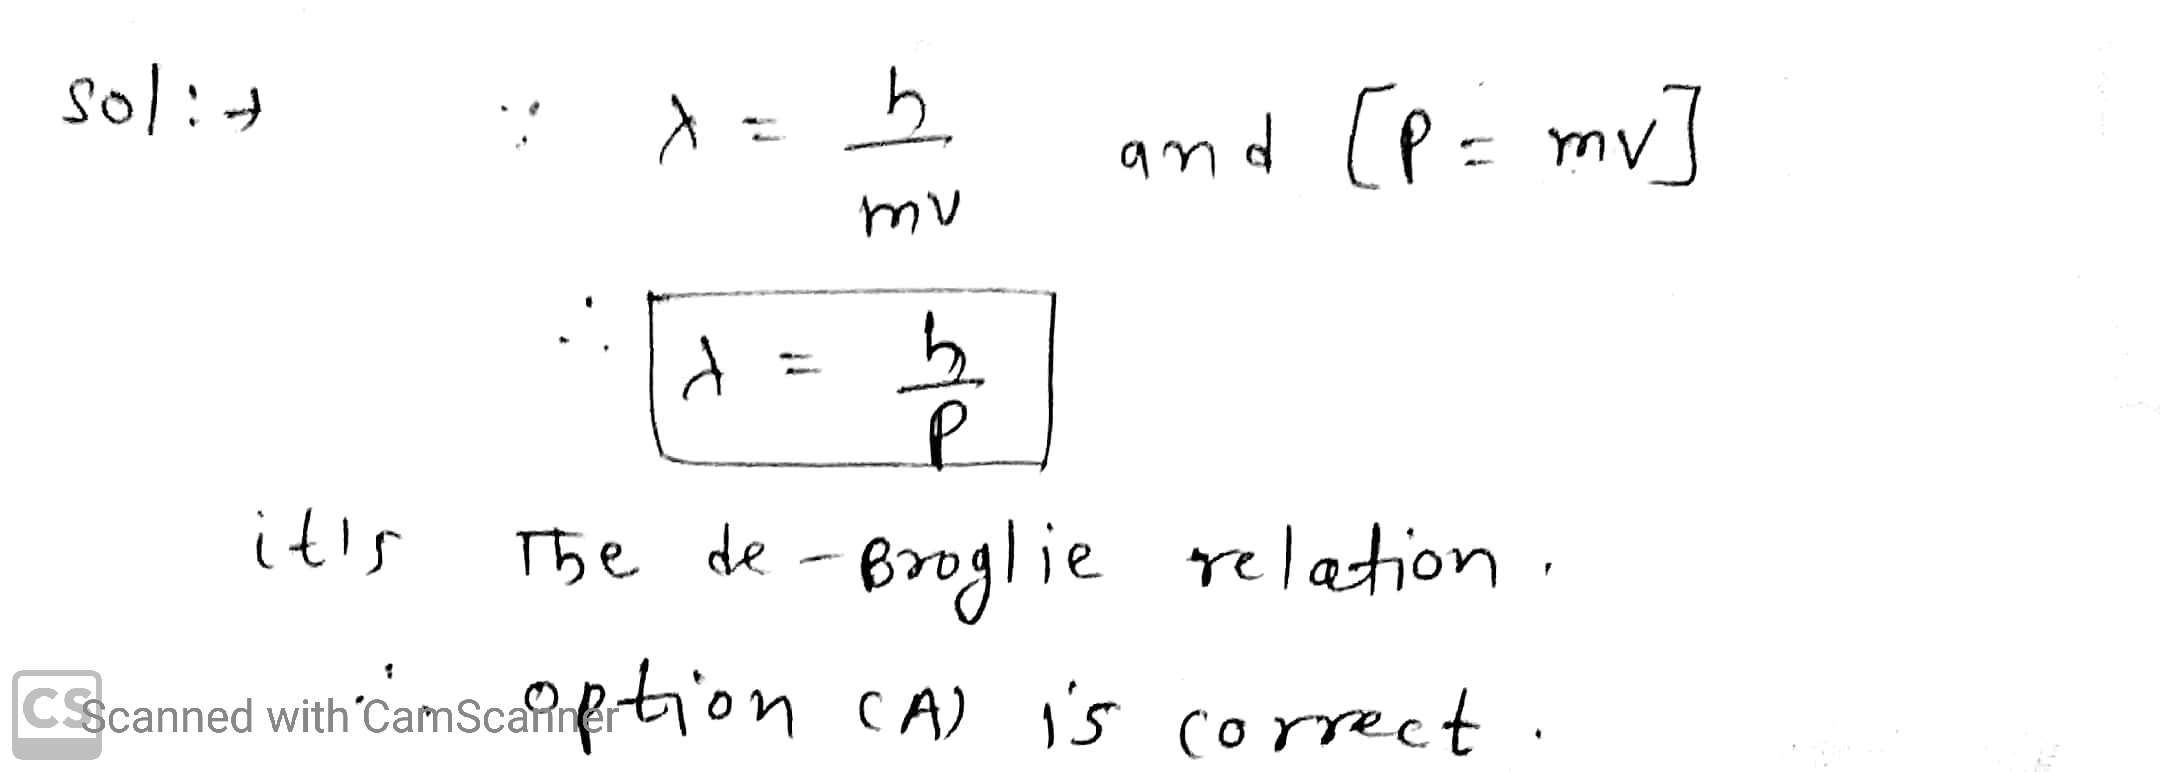 sol:→ ∵ λ = h/mv and [P = mv]
∴ λ = h/P
it's The de-Broglie relation.
∴ option (A) is correct.
CS Scanned with CamScanner